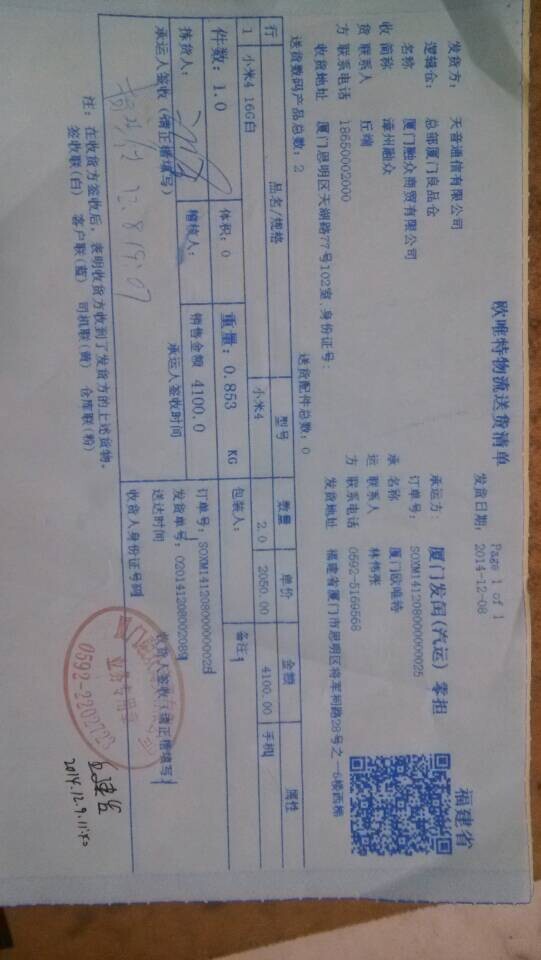 欧唯特物流送货清单
Page 1 of 1
福建省
发货日期: 2014-12-08
发货方: 天音通信有限公司
承运方: 厦门发闰(汽运) 零担
逻辑仓: 总部厦门良品仓
订单号: SOXM14120800000025
收货方 名称 厦门融众商贸有限公司
承运方 名称 厦门欧唯特
简称 漳州融众
联系人 林伟张
联系人 丘端
联系电话 0592-5169568
联系电话 18650002000
发货地址 福建省厦门市思明区将军祠路28号之一6楼西梯
收货地址 厦门思明区天湖路77号102室,身份证号:
送货数码产品总数: 2 送货配件总数: 0
行 品名/规格 型号 数量 单价 金额 属性
1 小米4 16G白 小米4 2.0 2050.00 4100.00 手机
件数: 1.0 体积: 0 重量: 0.853 KG 包装人: 备注:
拣货人: 稽核人: 销售金额 4100.0
订单号: SOXM14120800000025
发货单号: 0201412080002089
承运人签收(请正楷填写) 承运人签收时间
送达时间 收货人签收(请正楷填写)
收货人身份证号码
注: 在收货方签收后, 表明收货方收到了发货方的上述货物。
签收联(白) 客户联(蓝) 司机联(黄) 仓库联(粉)
业务专用章
2014.12.9.